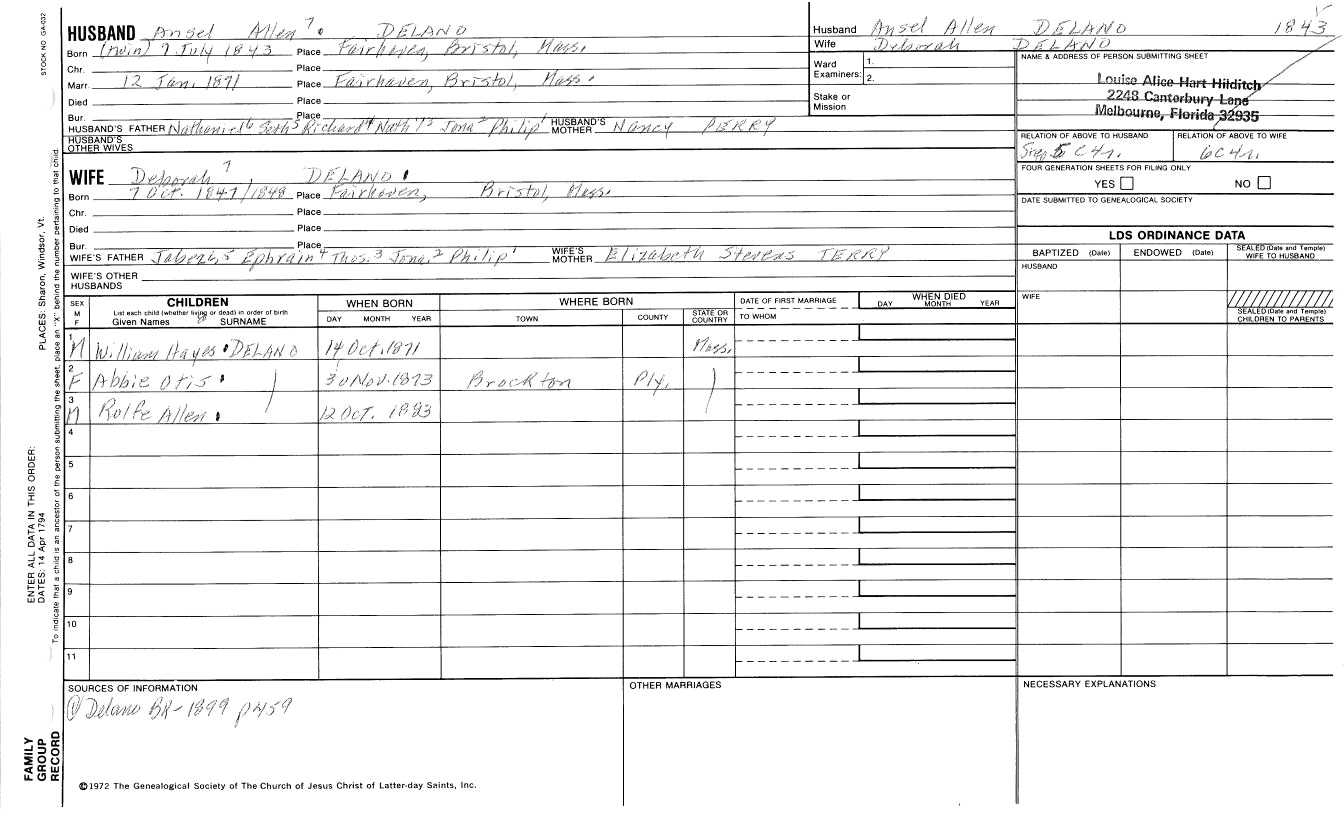 STOCK NO. GA-032
HUSBAND Ansel Allen 7 DELANO
Born (twin) 7 July 1843 Place Fairhaven, Bristol, Mass.
Chr. Place
Marr. 12 Jan. 1871 Place Fairhaven, Bristol, Mass.
Died Place
Bur. Place
HUSBAND'S FATHER Nathaniel 6 Seth 5 Richard 4 Nath'l 3 Jona 2 Philip 1 HUSBAND'S MOTHER Nancy PERRY
HUSBAND'S OTHER WIVES
WIFE Deborah 7 DELANO
Born 7 Oct. 1847/1848 Place Fairhaven, Bristol, Mass.
Chr. Place
Died Place
Bur. Place
WIFE'S FATHER Jabez, 5 Ephraim 4 Thos. 3 Jona. 2 Philip 1 WIFE'S MOTHER Elizabeth Stevens TERRY
WIFE'S OTHER HUSBANDS
Husband Ansel Allen DELANO 1843
Wife Deborah DELANO
Ward Examiners: 1. 2.
Stake or Mission
NAME & ADDRESS OF PERSON SUBMITTING SHEET
Louise Alice Hart Hilditch
2248 Canterbury Lane
Melbourne, Florida 32935
RELATION OF ABOVE TO HUSBAND RELATION OF ABOVE TO WIFE
5 C 4r. 6C 4r.
FOUR GENERATION SHEETS FOR FILING ONLY
YES NO
DATE SUBMITTED TO GENEALOGICAL SOCIETY
LDS ORDINANCE DATA
BAPTIZED (Date) ENDOWED (Date) SEALED (Date and Temple) WIFE TO HUSBAND
HUSBAND
WIFE
SEALED (Date and Temple) CHILDREN TO PARENTS
SEX M F CHILDREN WHEN BORN WHERE BORN DATE OF FIRST MARRIAGE WHEN DIED
List each child (whether living or dead) in order of birth
Given Names SURNAME DAY MONTH YEAR TOWN COUNTY STATE OR COUNTRY TO WHOM DAY MONTH YEAR
1 M William Hayes DELANO 14 Oct. 1871 Mass.
2 F Abbie Otis 30 Nov. 1873 Brockton Ply.
3 M Rolfe Allen 12 Oct. 1883
4
5
6
7
8
9
10
11
SOURCES OF INFORMATION
Delano BK - 1899 p 459
OTHER MARRIAGES
NECESSARY EXPLANATIONS
©1972 The Genealogical Society of The Church of Jesus Christ of Latter-day Saints, Inc.
FAMILY GROUP RECORD
ENTER ALL DATA IN THIS ORDER:
DATES: 14 Apr 1794 PLACES: Sharon, Windsor, Vt.
To indicate that a child is an ancestor of the person submitting the sheet, place an "X" behind the number pertaining to that child.